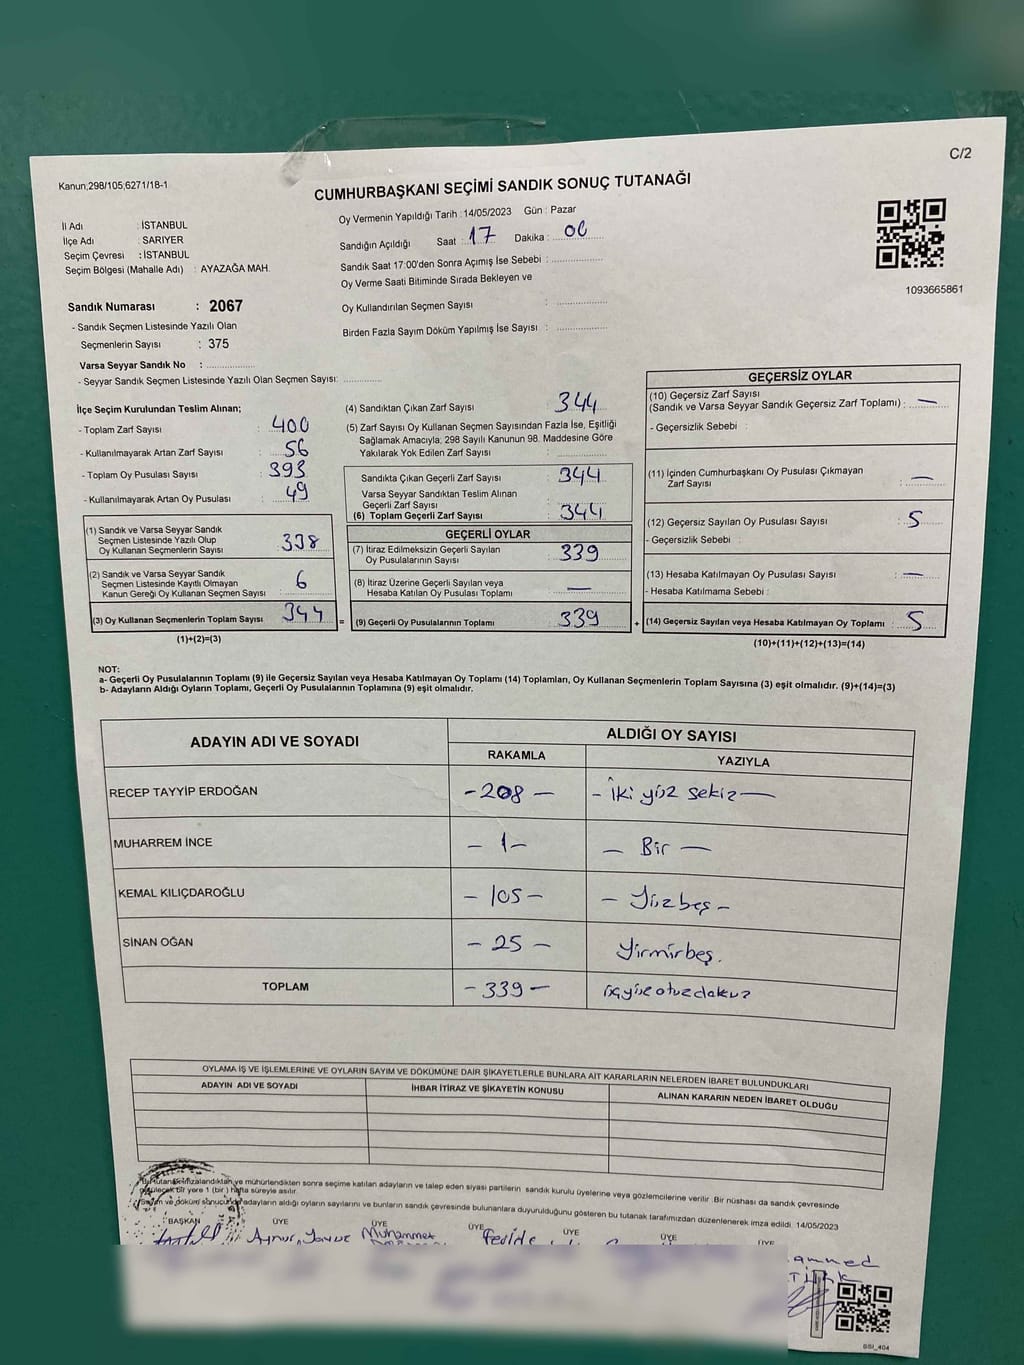 C/2
Kanun;298/105,6271/18-1
CUMHURBAŞKANI SEÇİMİ SANDIK SONUÇ TUTANAĞI
İl Adı : İSTANBUL
İlçe Adı : SARIYER
Seçim Çevresi : İSTANBUL
Seçim Bölgesi (Mahalle Adı) : AYAZAĞA MAH.
Oy Vermenin Yapıldığı Tarih :14/05/2023 Gün : Pazar
Sandığın Açıldığı Saat : 17 Dakika : 00
Sandık Saat 17:00'den Sonra Açımış İse Sebebi :
Oy Verme Saati Bitiminde Sırada Bekleyen ve
Oy Kullandırılan Seçmen Sayısı :
Birden Fazla Sayım Döküm Yapılmış İse Sayısı :
1093665861
Sandık Numarası : 2067
- Sandık Seçmen Listesinde Yazılı Olan
Seçmenlerin Sayısı : 375
Varsa Seyyar Sandık No :
- Seyyar Sandık Seçmen Listesinde Yazılı Olan Seçmen Sayısı:
İlçe Seçim Kurulundan Teslim Alınan;
- Toplam Zarf Sayısı : 400
- Kullanılmayarak Artan Zarf Sayısı : 56
- Toplam Oy Pusulası Sayısı : 393
- Kullanılmayarak Artan Oy Pusulası : 49
(1) Sandık ve Varsa Seyyar Sandık
Seçmen Listesinde Yazılı Olup
Oy Kullanan Seçmenlerin Sayısı : 338
(2) Sandık ve Varsa Seyyar Sandık
Seçmen Listesinde Kayıtlı Olmayan
Kanun Gereği Oy Kullanan Seçmen Sayısı : 6
(3) Oy Kullanan Seçmenlerin Toplam Sayısı : 344 =
(1)+(2)=(3)
(4) Sandıktan Çıkan Zarf Sayısı : 344
(5) Zarf Sayısı Oy Kullanan Seçmen Sayısından Fazla İse, Eşitliği
Sağlamak Amacıyla; 298 Sayılı Kanunun 98. Maddesine Göre
Yakılarak Yok Edilen Zarf Sayısı :
Sandıkta Çıkan Geçerli Zarf Sayısı : 344
Varsa Seyyar Sandıktan Teslim Alınan
Geçerli Zarf Sayısı :
(6) Toplam Geçerli Zarf Sayısı : 344
GEÇERLİ OYLAR
(7) İtiraz Edilmeksizin Geçerli Sayılan
Oy Pusulalarının Sayısı : 339
(8) İtiraz Üzerine Geçerli Sayılan veya
Hesaba Katılan Oy Pusulası Toplamı : —
(9) Geçerli Oy Pusulalarının Toplamı : 339 +
GEÇERSİZ OYLAR
(10) Geçersiz Zarf Sayısı
(Sandık ve Varsa Seyyar Sandık Geçersiz Zarf Toplamı) : —
- Geçersizlik Sebebi :
(11) İçinden Cumhurbaşkanı Oy Pusulası Çıkmayan
Zarf Sayısı : —
(12) Geçersiz Sayılan Oy Pusulası Sayısı : 5
- Geçersizlik Sebebi :
(13) Hesaba Katılmayan Oy Pusulası Sayısı : —
- Hesaba Katılmama Sebebi :
(14) Geçersiz Sayılan veya Hesaba Katılmayan Oy Toplamı : 5
(10)+(11)+(12)+(13)=(14)
NOT:
a- Geçerli Oy Pusulalarının Toplamı (9) ile Geçersiz Sayılan veya Hesaba Katılmayan Oy Toplamı (14) Toplamları, Oy Kullanan Seçmenlerin Toplam Sayısına (3) eşit olmalıdır. (9)+(14)=(3)
b- Adayların Aldığı Oyların Toplamı, Geçerli Oy Pusulalarının Toplamına (9) eşit olmalıdır.
ADAYIN ADI VE SOYADI ALDIĞI OY SAYISI
RAKAMLA YAZIYLA
RECEP TAYYİP ERDOĞAN - 208 - - İki yüz sekiz —
MUHARREM İNCE - 1 - - Bir —
KEMAL KILIÇDAROĞLU - 105 - - Yüzbeş -
SİNAN OĞAN - 25 - Yirmirbeş.
TOPLAM - 339 - üçyüzotuzdokuz
OYLAMA İŞ VE İŞLEMLERİNE VE OYLARIN SAYIM VE DÖKÜMÜNE DAİR ŞİKAYETLERLE BUNLARA AİT KARARLARIN NELERDEN İBARET BULUNDUKLARI
ADAYIN ADI VE SOYADI İHBAR İTİRAZ VE ŞİKAYETİN KONUSU ALINAN KARARIN NEDEN İBARET OLDUĞU
imzalandıktan ve mühürlendikten sonra seçime katılan adayların ve talep eden siyasi partilerin sandık kurulu üyelerine veya gözlemcilerine verilir. Bir nüshası da sandık çevresinde
bir yere 1 (bir) hafta süreyle asılır.
ve dökümü sonucunda adayların aldığı oyların sayılarını ve bunların sandık çevresinde bulunanlara duyurulduğunu gösteren bu tutanak tarafımızdan düzenlenerek imza edildi. 14/05/2023
BAŞKAN ÜYE ÜYE ÜYE ÜYE ÜYE ÜYE
Aynur Yavuz Muhammet Feride
SSI_404